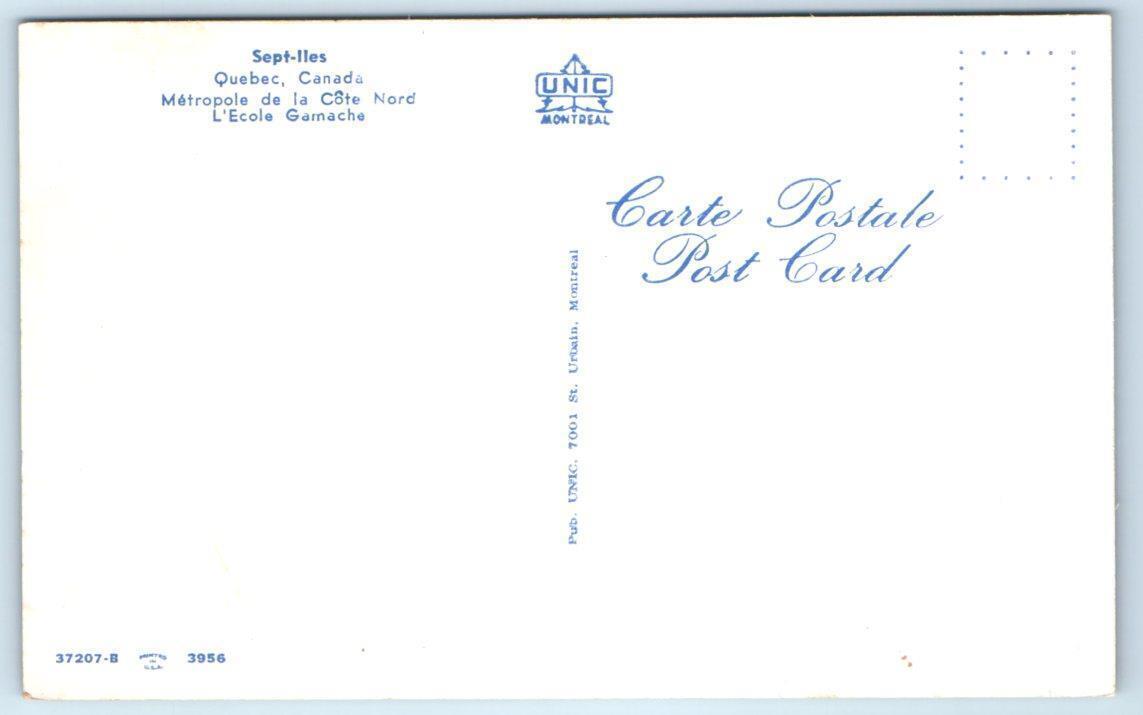 Sept-Iles
Quebec, Canada
Métropole de la Côte Nord
L'Ecole Gamache
UNIC
MONTREAL
Carte Postale
Post Card
Pub. UNIC, 7001 St. Urbain, Montreal
37207-B
PRINTED
IN
U.S.A.
3956